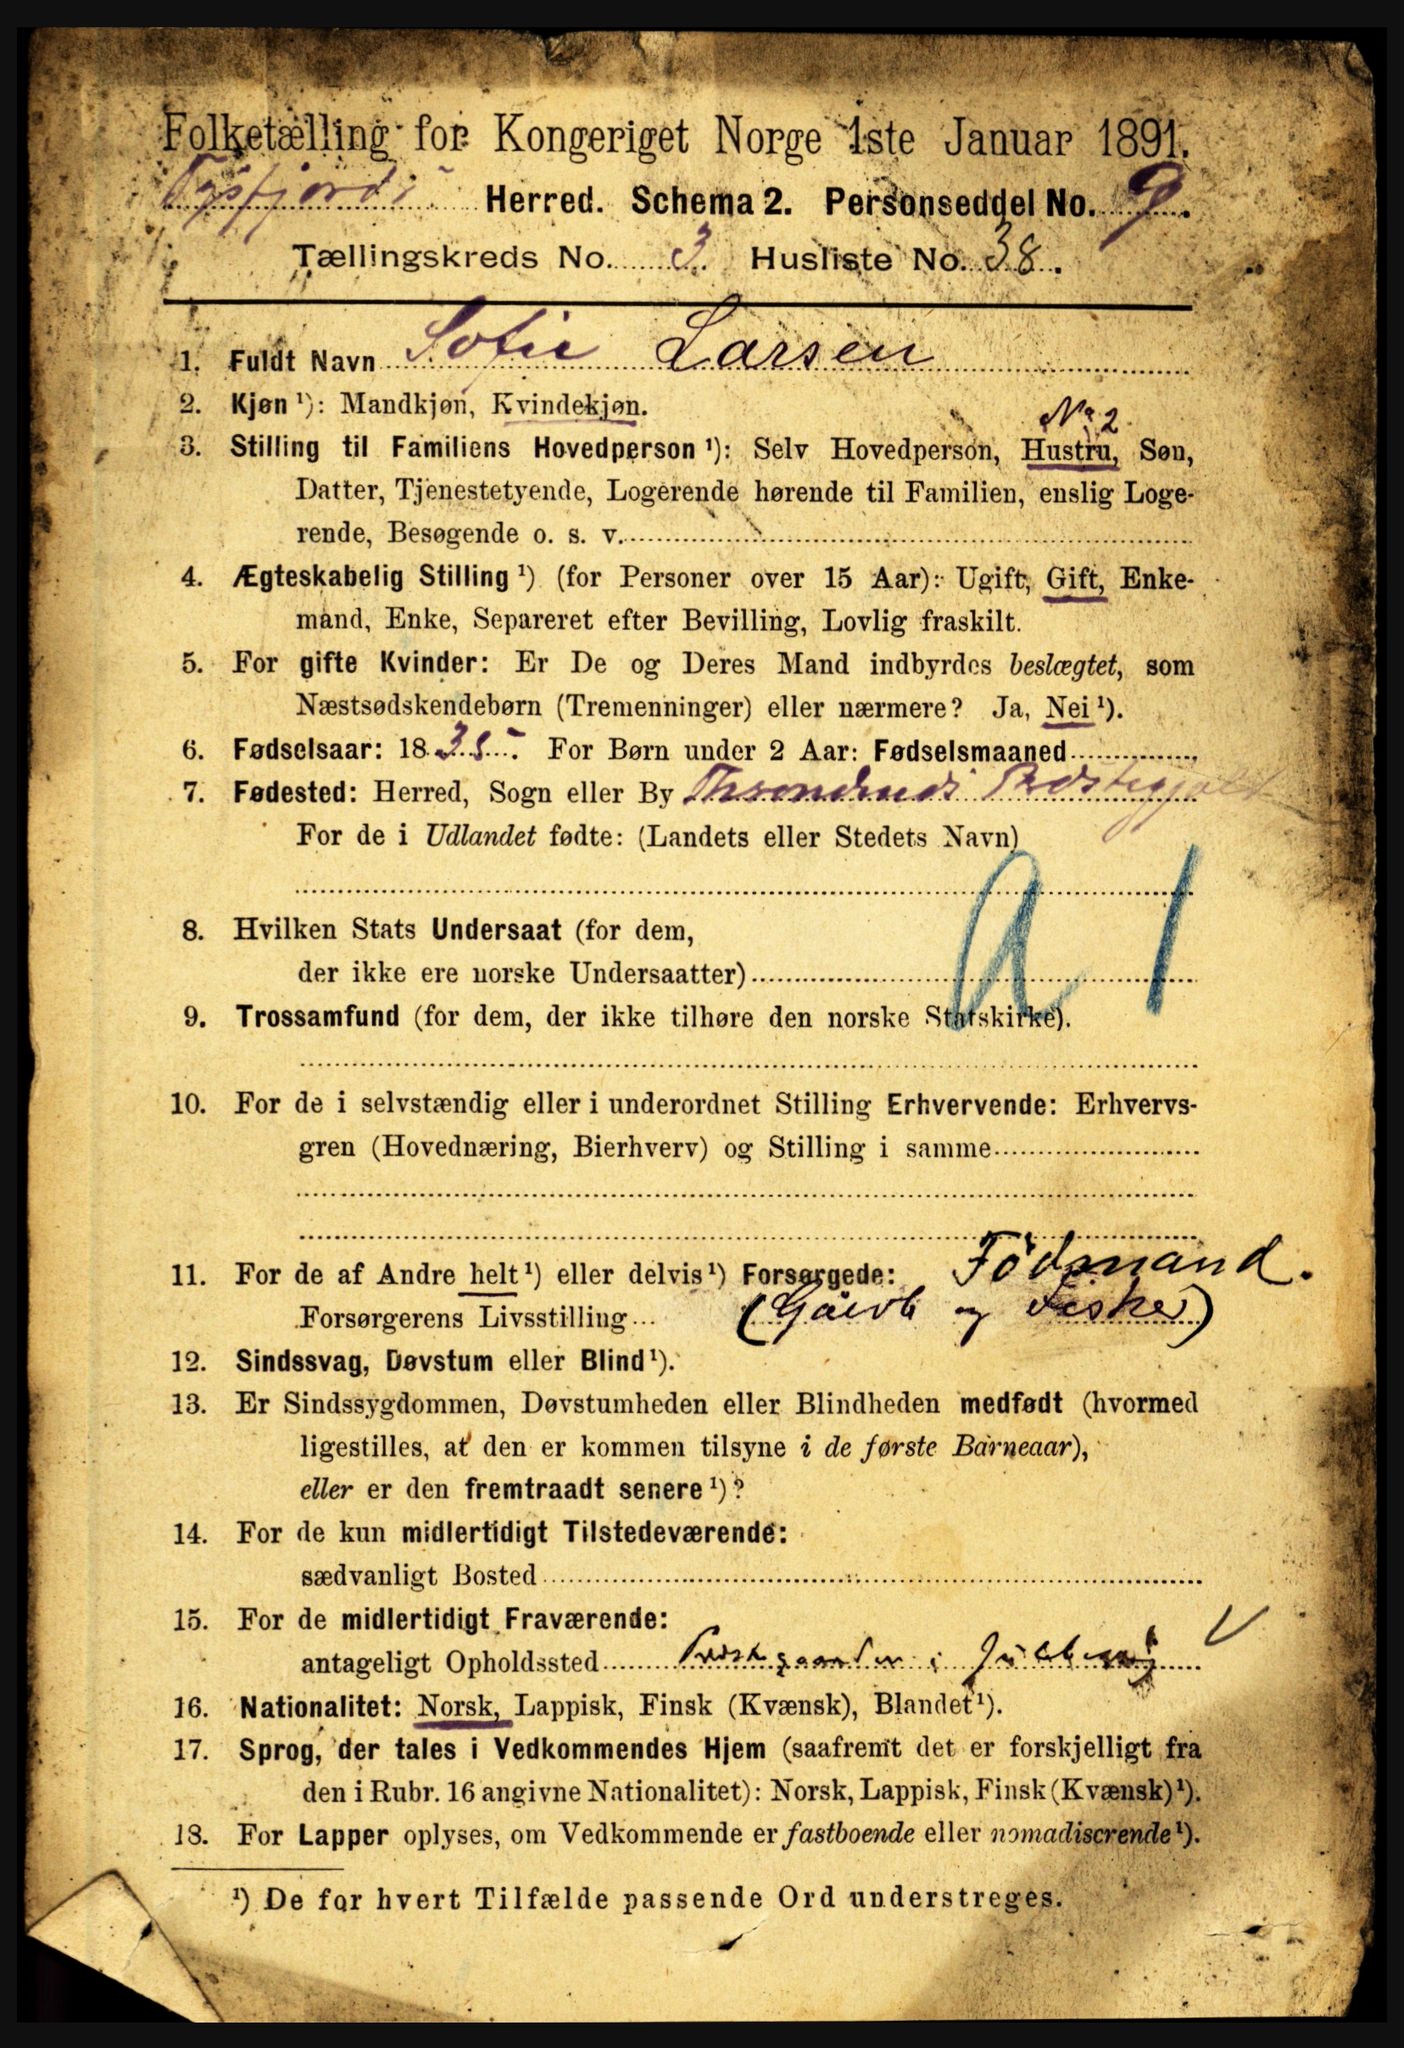 Folketælling for Kongeriget Norge 1ste Januar 1891.
Tysfjords Herred. Schema 2. Personseddel No. 9.
Tællingskreds No. 3. Husliste No. 38.
1. Fuldt Navn Sofie Larsen
2. Kjøn ¹): Mandkjøn, Kvindekjøn.
No 2
3. Stilling til Familiens Hovedperson ¹): Selv Hovedperson, Hustru, Søn,
Datter, Tjenestetyende, Logerende hørende til Familien, enslig Loge-
rende, Besøgende o. s. v.
4. Ægteskabelig Stilling ¹) (for Personer over 15 Aar): Ugift, Gift, Enke-
mand, Enke, Separeret efter Bevilling, Lovlig fraskilt.
5. For gifte Kvinder: Er De og Deres Mand indbyrdes beslægtet, som
Næstsødskendebørn (Tremenninger) eller nærmere? Ja, Nei ¹).
6. Fødselsaar: 1835. For Børn under 2 Aar: Fødselsmaaned
7. Fødested: Herred, Sogn eller By Throndenæs Præstegjæld
For de i Udlandet fødte: (Landets eller Stedets Navn)
a 1
8. Hvilken Stats Undersaat (for dem,
der ikke ere norske Undersaatter)
9. Trossamfund (for dem, der ikke tilhøre den norske Statskirke).
10. For de i selvstændig eller i underordnet Stilling Erhvervende: Erhvervs-
gren (Hovednæring, Bierhverv) og Stilling i samme
11. For de af Andre helt ¹) eller delvis ¹) Forsørgede: Fødmand.
Forsørgerens Livsstilling (Gaardb og Fisker)
12. Sindssvag, Døvstum eller Blind ¹).
13. Er Sindssygdommen, Døvstumheden eller Blindheden medfødt (hvormed
ligestilles, at den er kommen tilsyne i de første Barneaar),
eller er den fremtraadt senere ¹)?
14. For de kun midlertidigt Tilstedeværende:
sædvanligt Bosted
15. For de midlertidigt Fraværende:
antageligt Opholdssted Præstegaarden i
16. Nationalitet: Norsk, Lappisk, Finsk (Kvænsk), Blandet ¹).
17. Sprog, der tales i Vedkommendes Hjem (saafremt det er forskjelligt fra
den i Rubr. 16 angivne Nationalitet): Norsk, Lappisk, Finsk (Kvænsk) ¹).
18. For Lapper oplyses, om Vedkommende er fastboende eller nomadiserende ¹).
¹) De for hvert Tilfælde passende Ord understreges.